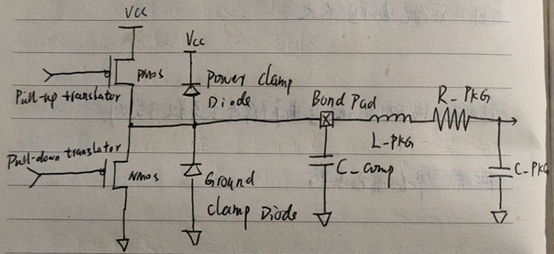 Vcc
Vcc
PMOS
Power clamp
Diode
Pull-up translator
Bond Pad
R_PKG
L-PKG
Pull-down translator
NMOS
Ground
clamp Diode
C_comp
C_PKG